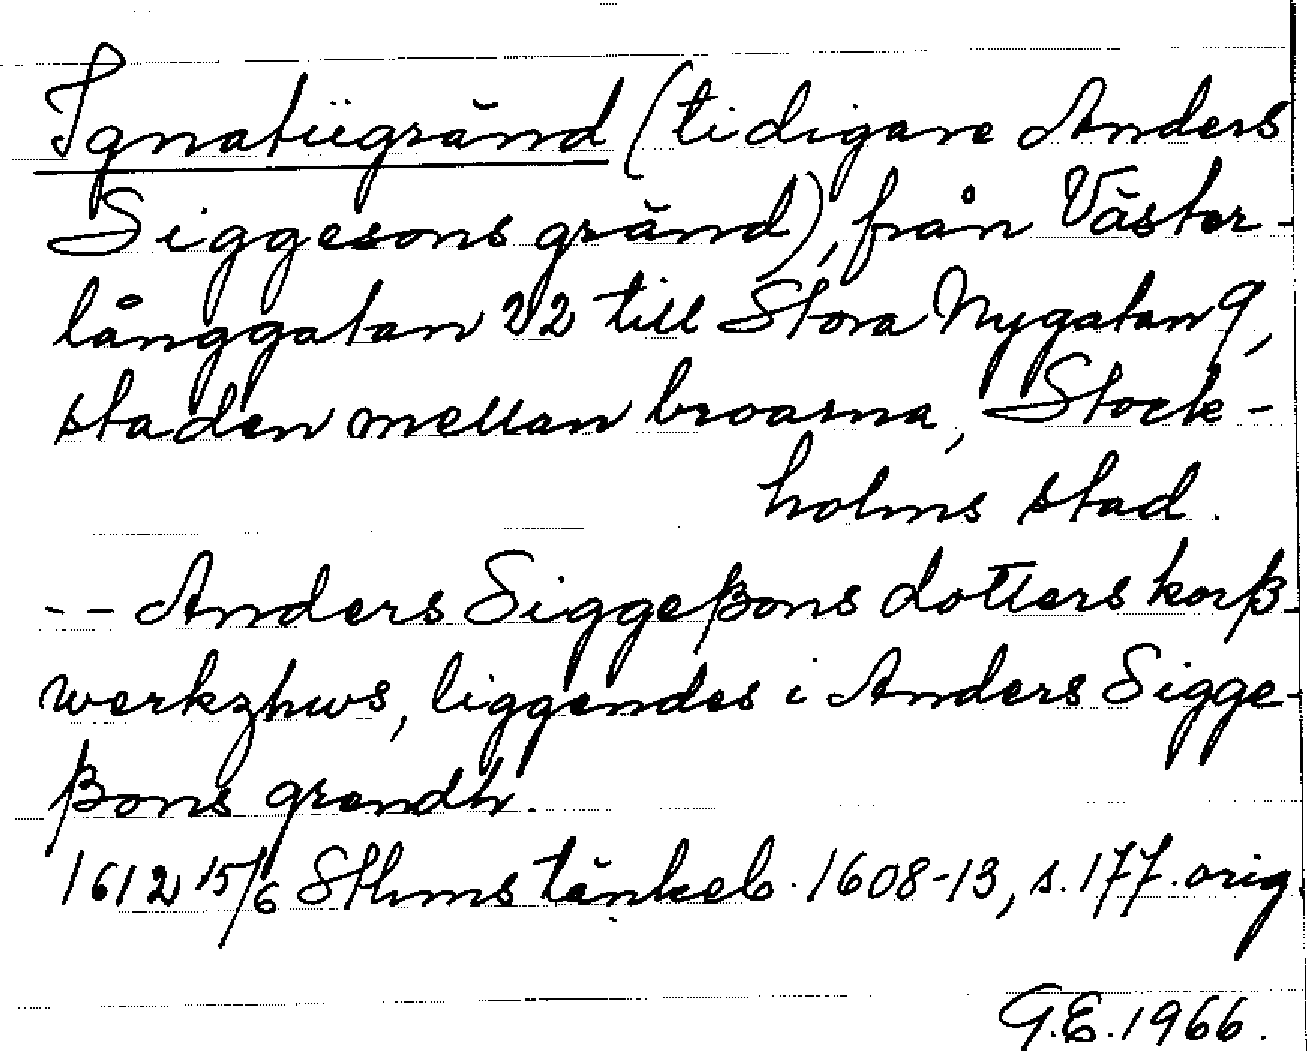 Ignatiigränd (tidigare Anders
Siggesons gränd), från Väster-
långgatan 22 till Stora Nygatan 9,
staden mellan broarna, Stock-
holms stad.
-- Anders Siggeßons dotters korß-
werkzhws, liggendes i Anders Sigge-
ßons grendh.
1612 15/6 Sthms tänkeb. 1608-13, s. 177. orig.
G.E. 1966.